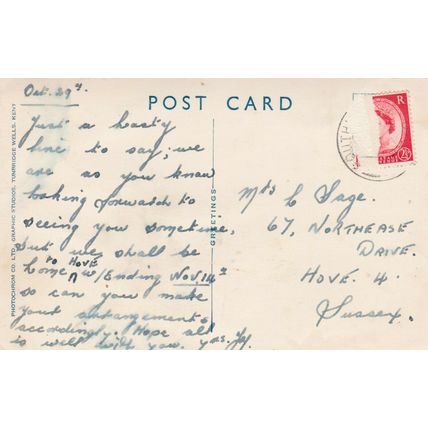 Oct. 29th.
POST CARD
Just a hasty
line to say, we
are as you know
looking forward to
seeing you sometime,
but we shall be
to HOVE
home W/Ending Nov 14th
so can you make
your arrangements
accordingly. Hope all
is well with you. yrs.
GREETINGS
PHOTOCHROM CO. LTD., GRAPHIC STUDIOS, TUNBRIDGE WELLS, KENT
R
2½
Mrs C Sage.
67, NORTHEASE
DRIVE.
HOVE. 4.
Sussex.